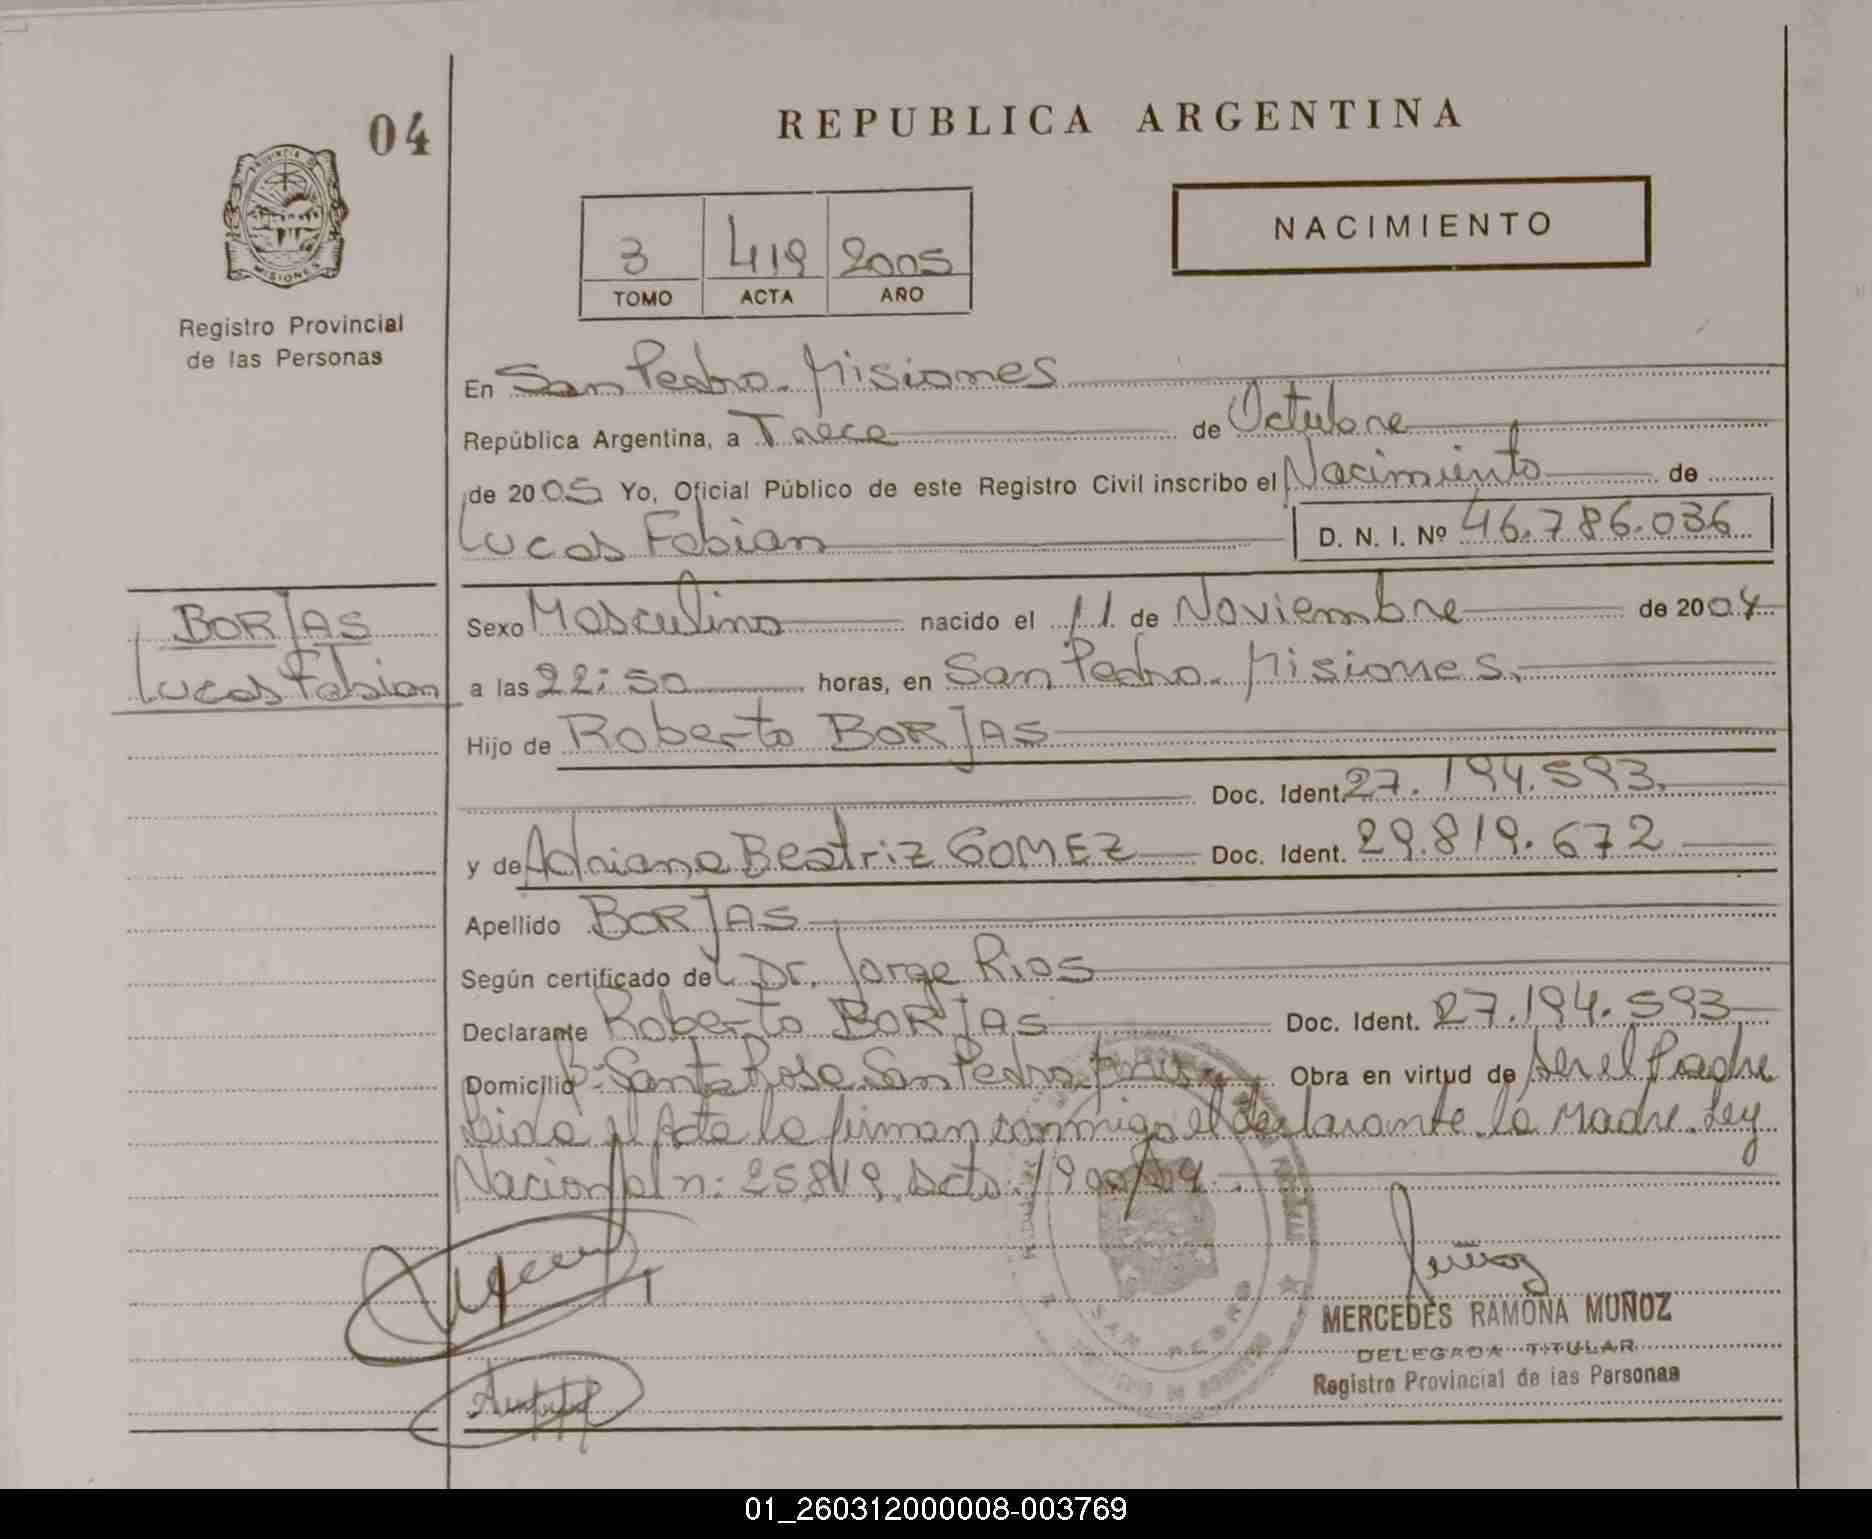 04
REPUBLICA ARGENTINA
PROVINCIA D
MISIONES
Registro Provincial
de las Personas
3 419 2005
TOMO ACTA AÑO
NACIMIENTO
En San Pedro. Misiones
República Argentina, a Trece de Octubre
de 2005 Yo, Oficial Público de este Registro Civil inscribo el Nacimiento de
Lucas Fabian D. N. I. Nº 46.786.036
BORJAS
Lucas Fabian
Sexo Masculino nacido el 11 de Noviembre de 2004
a las 22:50 horas, en San Pedro. Misiones.
Hijo de Roberto BORJAS
Doc. Ident. 27.194.593.
y de Adriana Beatriz GOMEZ Doc. Ident. 29.819.672
Apellido BORJAS
Según certificado del Dr. Jorge Rios
Declarante Roberto BORJAS Doc. Ident. 27.194.593
Domicilio Bº: Santa Rosa San Pedro. Obra en virtud de ser el Padre
Leida el Acta la firman conmigo el declarante. la Madre. Ley
Nacional n: 25.819. Dcto: 1900/04.
SAN PEDRO
Muñoz
MERCEDES RAMONA MUÑOZ
DELEGADA TITULAR
Registro Provincial de las Personas
01_260312000008-003769